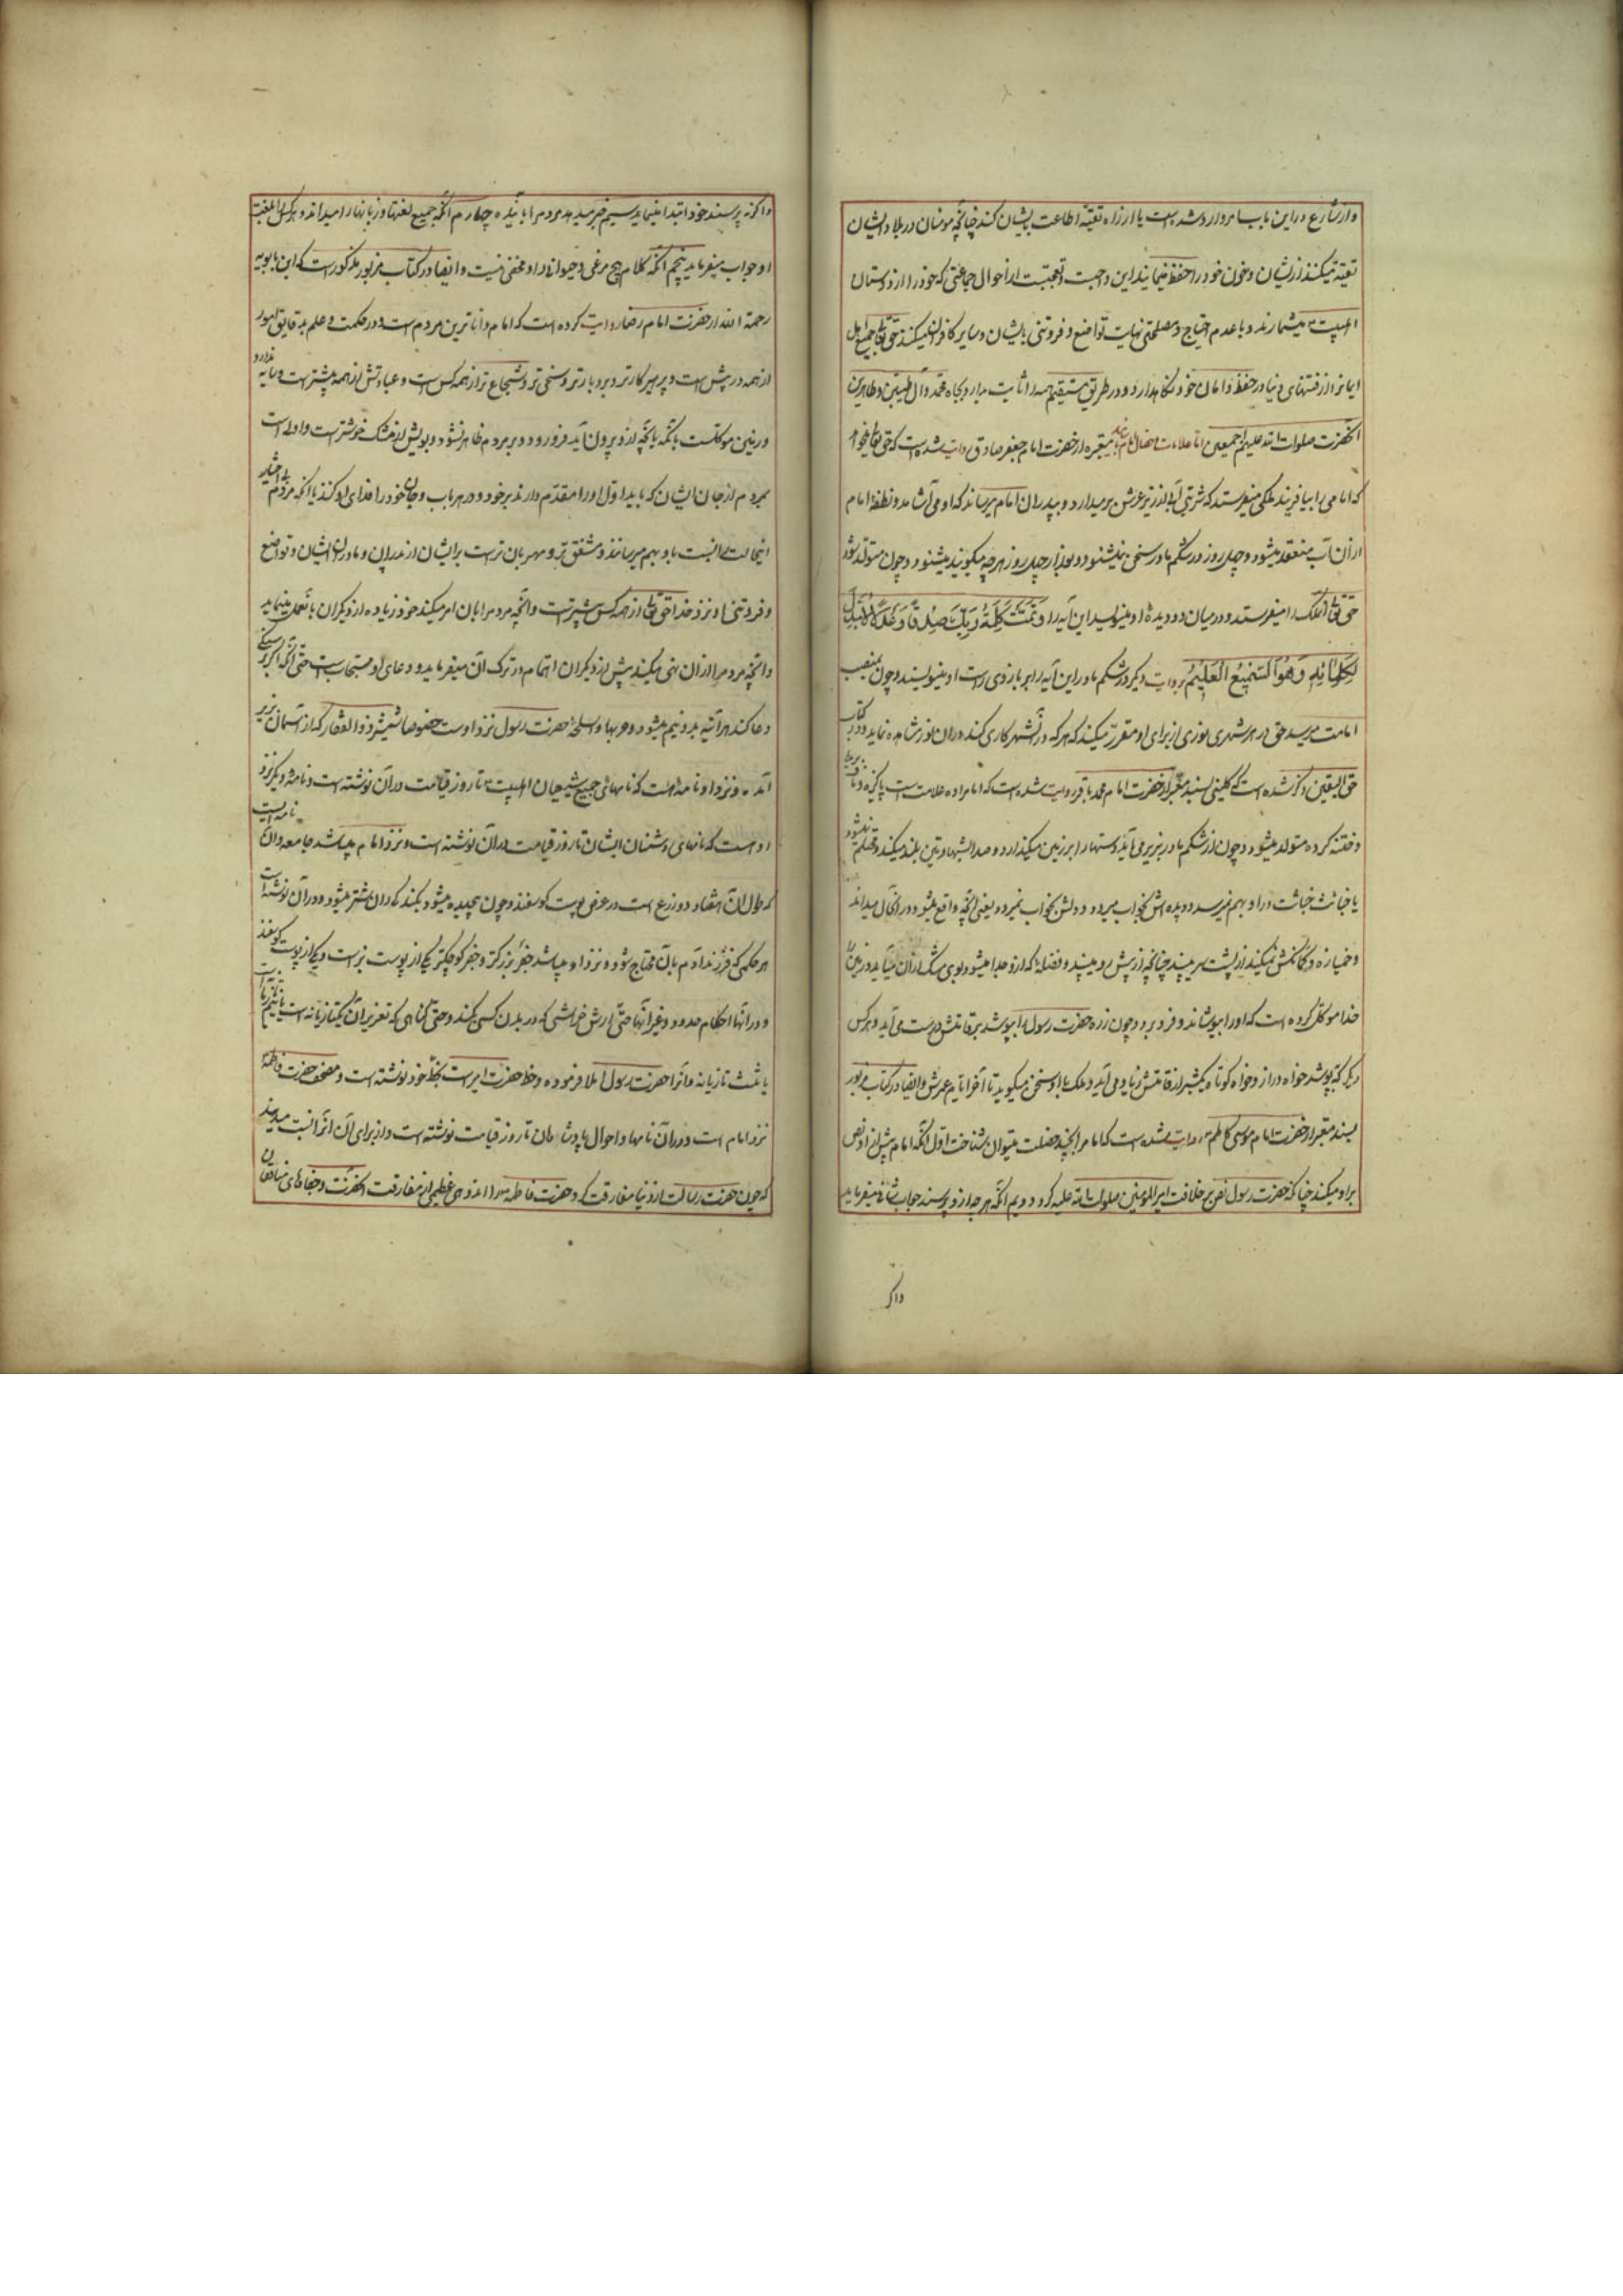 و از شارع در این باب امر وارد شده است یا از راه تقیه اطاعت ایشان کند چنانچه مؤمنان در بلاد ایشان
تقیه میکنند از ایشان و خون خود را حفظ مینمایند این واجبست و تعجبست از احوال جماعتی که خود را از دوستان
اهلبیت میشمارند و با عدم احتیاج و مصلحتی نهایت تواضع و فروتنی بایشان و سایر کافران میکنند حق تعالی جمیع اهل
ایمانرا از فتنهای دنیا در حفظ و امان خود نگاهدارد و در طریق مستقیم همه را ثابت بدارد بجاه محمد و آل طیبین و طاهرین
آنحضرت صلوات الله علیهم اجمعین اما علامات و خصال امام معتبره از حضرت امام جعفر صادق روایت شده است که حق تعالی میخواهد
که امامی را بیافریند ملکی میفرستد که شربتی آب از زیر عرش بر میدارد و بپدران امام میرساند که او می آشامد و نطفهٔ امام
از آن آب منعقد میشود و چهل روز در شکم مادر سخن نمیشنود و بعد از چهل روز هر چه میگویند میشنود و چون متولد شد
حق تعالی آن ملک را میفرستد و در میان دو دیدهٔ او مینویسد این آیه را و تَمَّتْ كَلِمَةُ رَبِّكَ صِدْقًا وَعَدْلًا لَا مُبَدِّلَ
لِكَلِمَاتِهِ وَهُوَ السَّمِيعُ الْعَلِيمُ بروایت دیگر در شکم مادر این آیه را بر بازوی راست او مینویسند و چون بمنصب
امامت میرسد حق در هر شهری نوری از برای او مقرر میکند که هر که در آن شهر کاری کند در آن نور مشاهده نماید و در کتاب
حق الیقین ذکر شده است که کلینی بسند معتبر از حضرت امام محمد باقر روایت شده است که امام را ده علامت است پاکیزه و ناف بریده
و ختنه کرده متولد میشود و چون از شکم مادر بزیر می آید دستها را بر زمین میگذارد و صدا بشهادتین بلند میکند و محتلم نمیشود
یا خباثت جنابت در او بهم نمیرسد و دیده اش بخواب میرود و دلش بخواب نمیرود یعنی آنچه واقع میشود در آنحال میداند
و خمیازه و کمانکش نمیکند از پشت سر میبیند چنانچه از پیش رو میبیند و فضلهٔ که ازو جدا میشود بوی مشک از آن میآید و زمین را
خدا موکل کرده است که آنرا بپوشاند و فرو برد و چون زره حضرت رسول را بپوشد بر قامتش درست می آید و هر کس
دیگر که بپوشد خواه دراز و خواه کوتاه یکشبر از قامتش زیاد می آید و ملک با او سخن میگوید تا آخر ایام عمرش و ایضا در کتاب مزبور
بسند معتبر از حضرت امام موسی کاظم روایت شده است که امام را بچند خصلت میتوان شناخت اول آنکه امام پیش از او نص
بر او میکند چنانکه حضرت رسول نص بر خلافت امیرالمؤمنین صلوات الله علیه کرد دویم آنکه هر چه ازو پرسند جواب شافی میفرماید
واکر
و اگر نپرسند خود ابتدا مینماید سیم خبر میدهد مردم را بآینده چهارم آنکه جمیع لغتها و زبانها را میداند و هر کس را بلغت
او جواب میفرماید پنجم آنکه کلام هیچ مرغی و حیوانی از او مخفی نیست و ایضا در کتاب مزبور مذکور است که ابن بابویه
رحمة الله از حضرت امام رضا روایت کرده است که امام داناترین مردم است و در حکمت و علم بدقایق امور
از همه در پیش است و پرهیزکارتر و بردبارتر و سخی تر و شجاع تر از همه کس است و عبادتش از همه بیشتر است و سایه ندارد
و زمین موکلست بآنکه آنچه ازو بیرون آید فرو رود و بر مردم ظاهر نشود و بویش از مشک خوشتر است و اولی است
بمردم از جان ایشان که باید او را مقدم دارند بر خود و در هر باب و جان خود را فدای او کنند یا آنکه مردم بی اختیار
اینحالت را نسبت باو بهم میرسانند و مشفق تر و مهربان تر است بر ایشان از پدران و مادران ایشان و تواضع
و فروتنی او نزد خدا حق تعالی از همه کس بیشتر است و آنچه مردم را بآن امر میکند خود زیاده از دیگران بآن عمل مینماید
و آنچه مردم را از آن نهی میکند بیش از دیگران اهتمام در ترک آن میفرماید و دعای او مستجاب است حتی آنکه اگر بر سنگی
دعا کند هر آینه بدو نیم میشود و حربها و اسلحهٔ حضرت رسول نزد اوست خصوصا شمشیر ذوالفقار که از آسمان بزیر
آمده و نزد او نامهٔ هست که نامهای جمیع شیعیان اهلبیت تا روز قیامت در آن نوشته است و نامهٔ دیگر نزد
او هست که نامهای دشمنان ایشان تا روز قیامت در آن نوشته است و نزد امام میباشد جامعه و آن نامه ایست
که طول آن هفتاد ذرع است در عرض پوست گوسفند و چون پیچیده میشود بکنده ران شتر میشود و در آن نوشته است
هر حکمی که فرزند آدم بآن محتاج شود و نزد او میباشد جفر بزرگتر و جفر کوچکتر یکی از پوست بز است و یکی از پوست گوسفند
و در آنها احکام حدود و غیر آنها حتی ارش خراشی که در بدن کسی بکند و حتی گناهی که تعزیر آن یکتازیانه است یا نیم تازیانه است
یا ثلث تازیانه و آنرا حضرت رسول املا فرموده و خط حضرت امیر است بخط خود نوشته است و مصحف حضرت فاطمه
نزد امام است و در آن نامها و احوال پادشاهان تا روز قیامت نوشته است و از برای آن آنرا نسبت میدهند
که چون حضرت رسالت از دنیا مفارقت کرد حضرت فاطمه را اندوهی عظیم از مفارقت آنحضرت و جفاهای منافقان